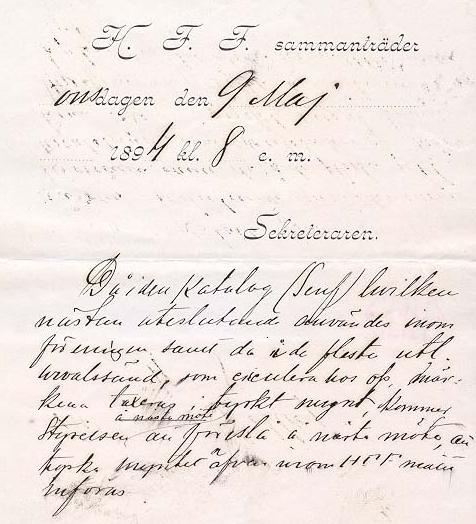 H. F. F. sammanträder
onsdagen den 9 Maj
1894 kl. 8 e. m.
Sekreteraren.
Då i den katalog (Senf) hvilken
nästan uteslutande användes inom
föreningen samt då i de flesta utl.
urvalssänd, som cirkulera hos oss, mär-
kena taxeras tyskt mynt, kommer
å nästa möte
Styrelsen att föreslå å nästa möte, att
tyska myntet äfven inom HFF måtte
införas